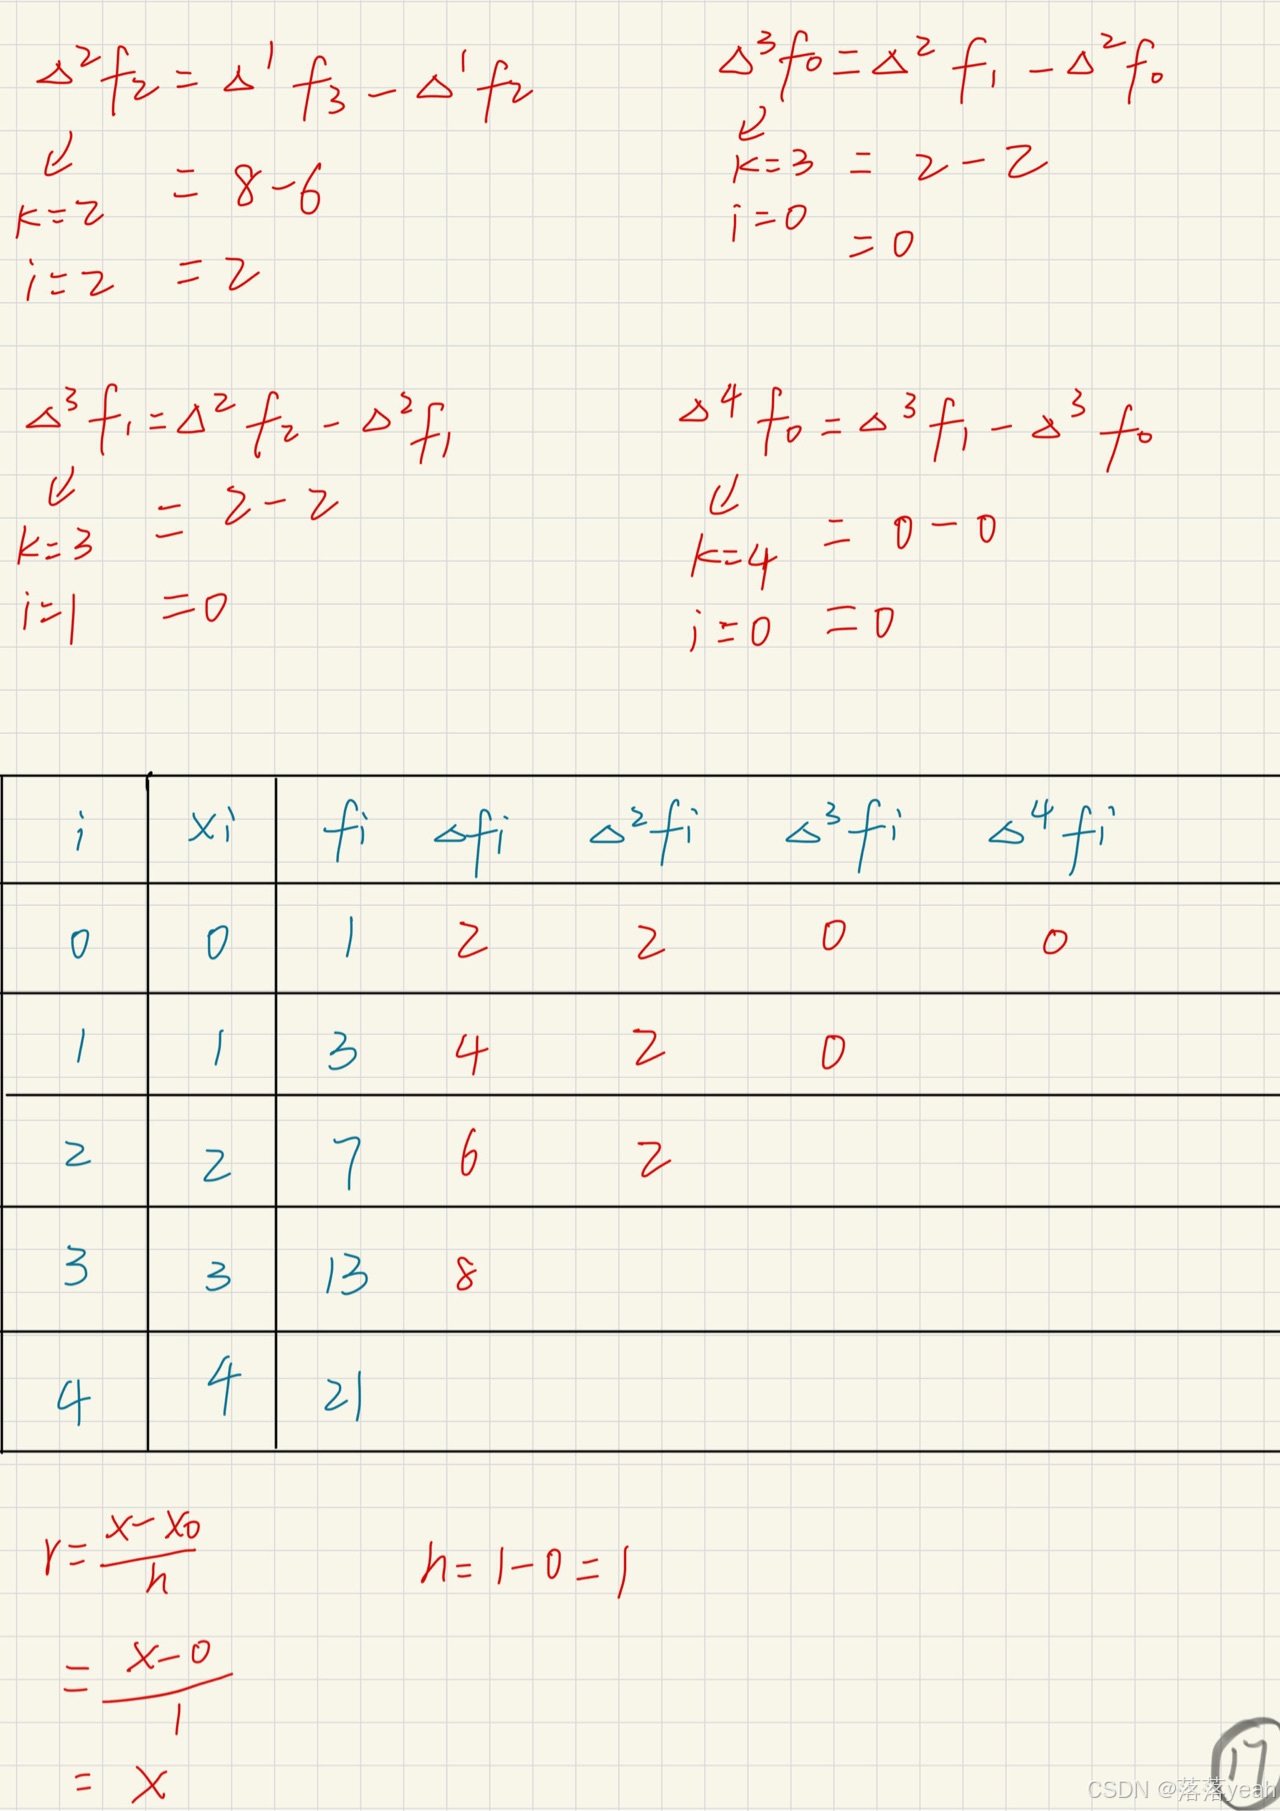 Δ²f₂ = Δ¹f₃ - Δ¹f₂
↙
k=2 = 8-6
i=2 = 2
Δ³f₀ = Δ²f₁ - Δ²f₀
↙
k=3 = 2-2
i=0
=0
Δ³f₁ = Δ²f₂ - Δ²f₁
↙
k=3 = 2-2
i=1 =0
Δ⁴f₀ = Δ³f₁ - Δ³f₀
↙
k=4 = 0-0
i=0 =0
i xi fi Δfi Δ²fi Δ³fi Δ⁴fi
0 0 1 2 2 0 0
1 1 3 4 2 0
2 2 7 6 2
3 3 13 8
4 4 21
r = (x-x₀)/h h=1-0=1
= (x-0)/1
= x
17
CSDN @落落yeah